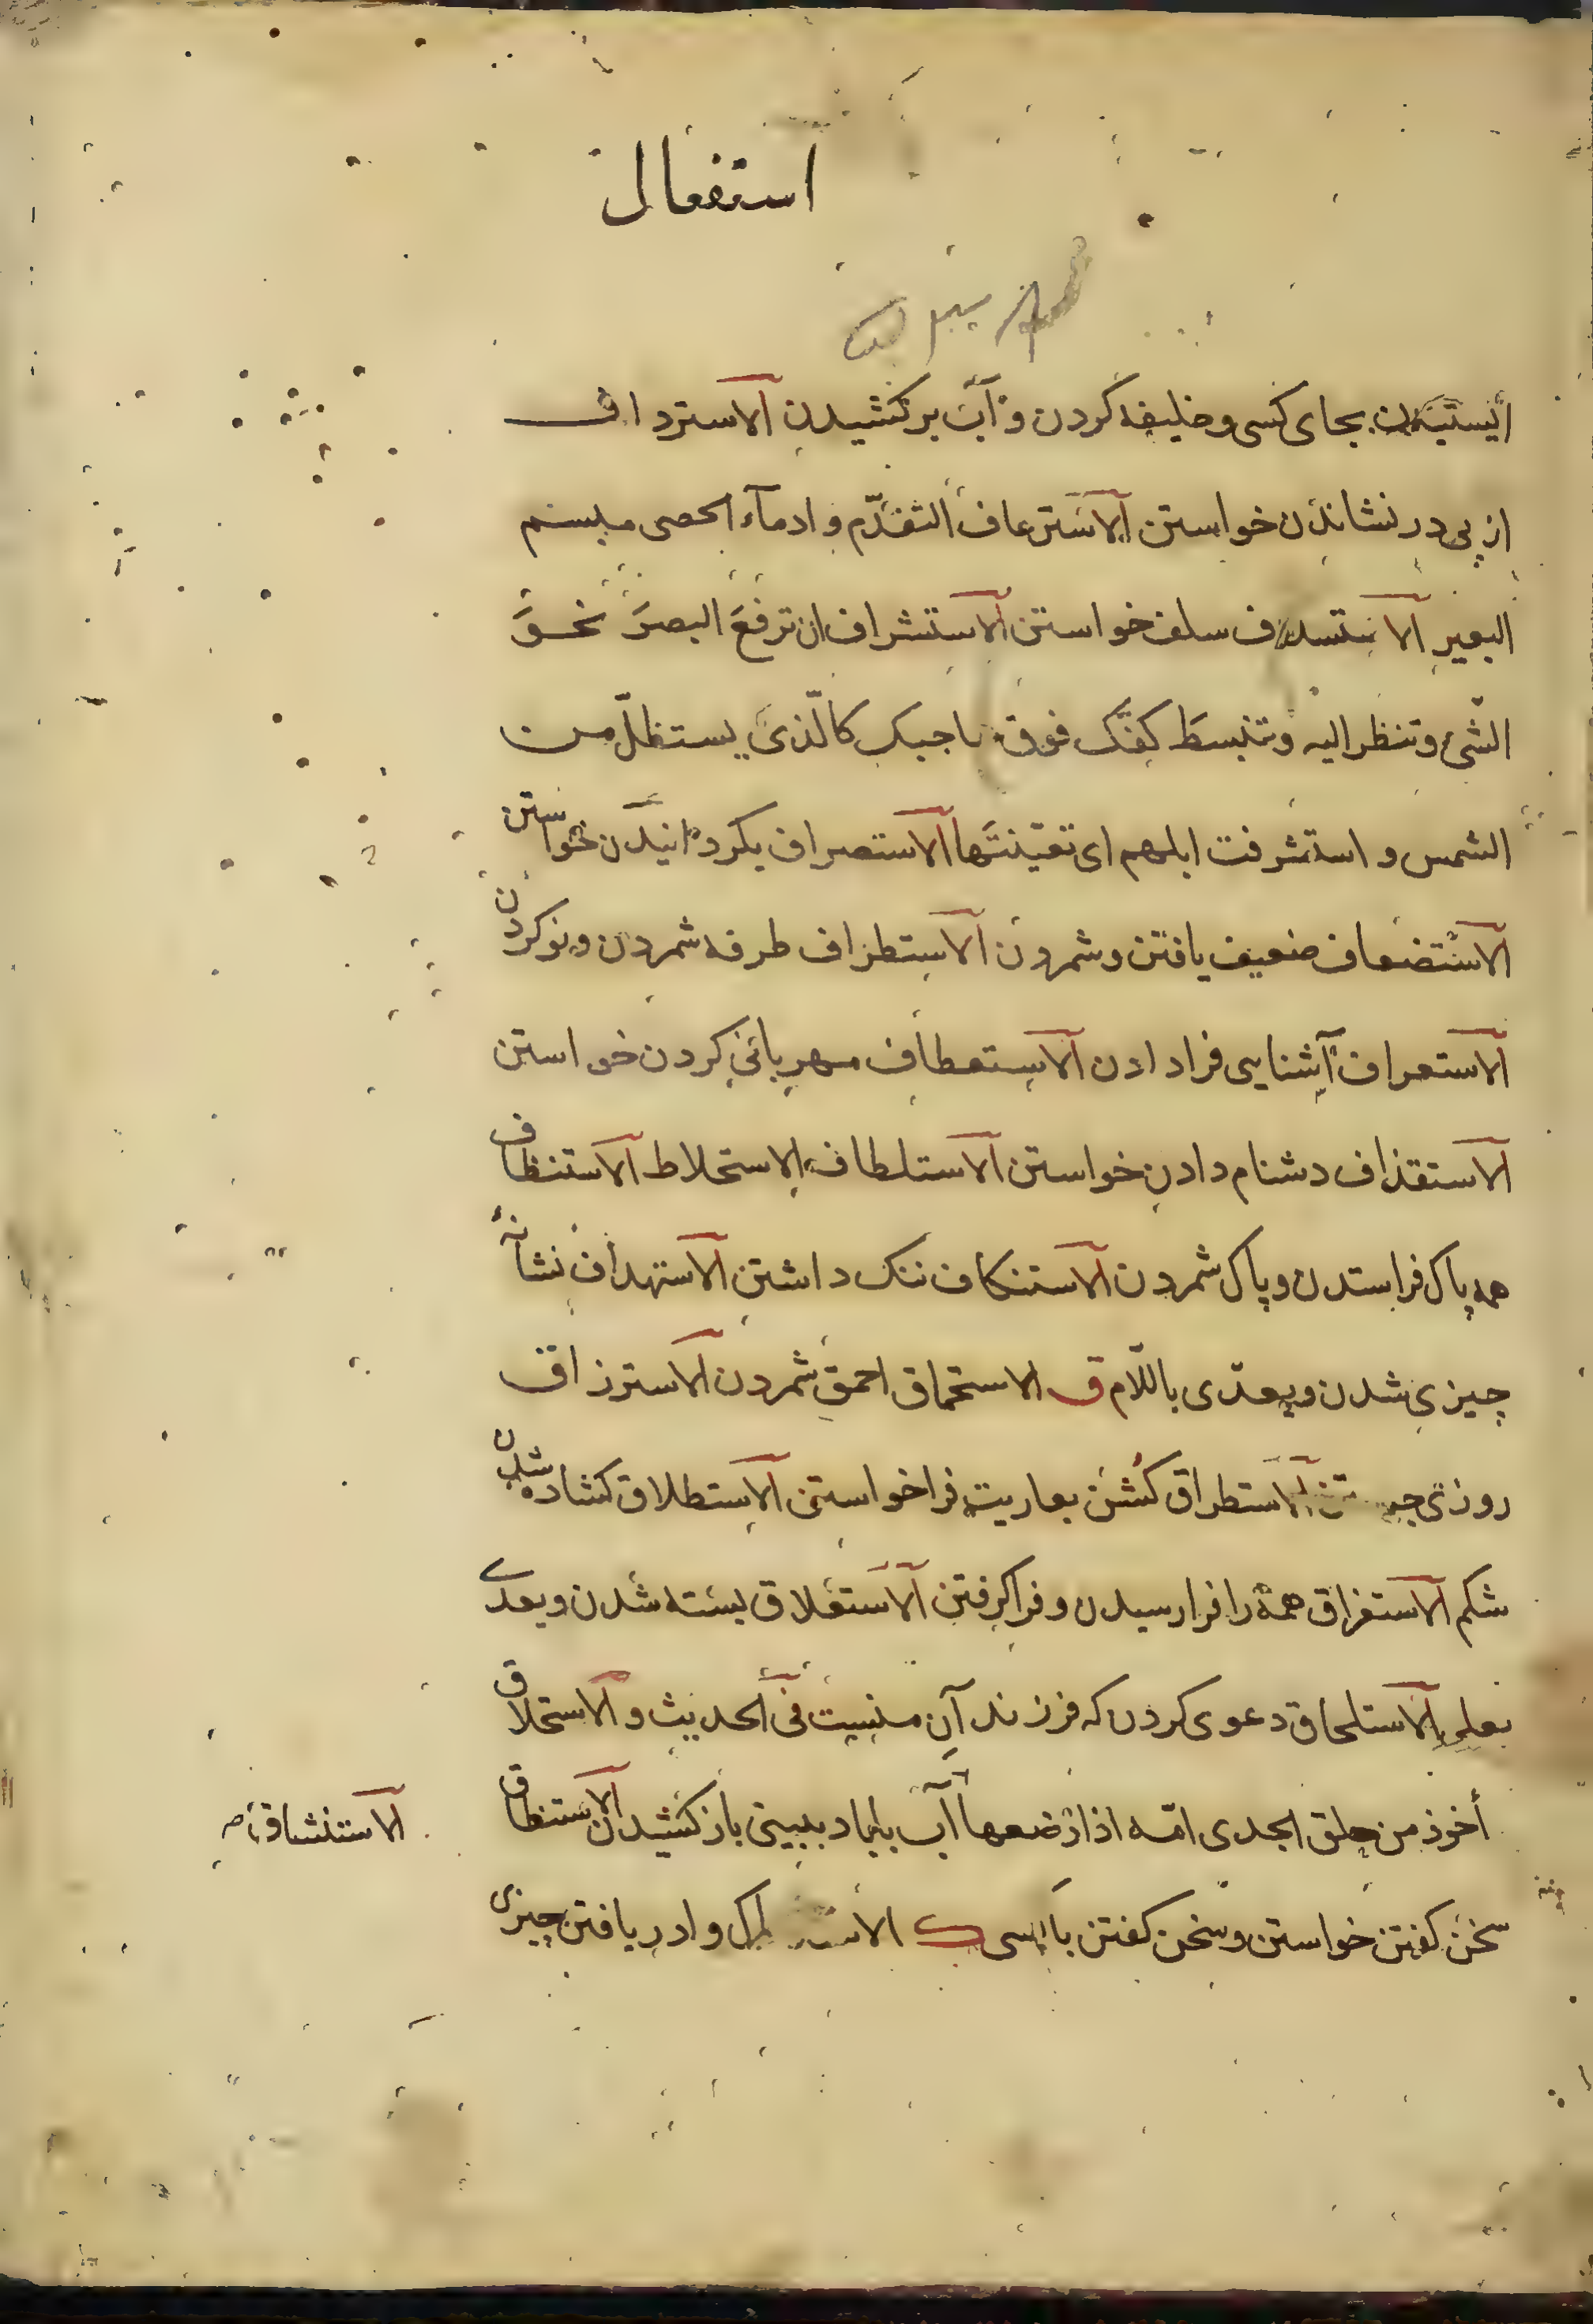 استفعال
ایستیدن بجای کسی و خلیفه کردن و آب برکشیدن الاسترداف
از پی در نشاندن خواستن الاسترعاف التقدّم و ادمآء الحصی میسم
البعیر الاستسلاف سلف خواستن الاستشراف ان ترفعَ البصرَ نحوَ
الشّیٔ وتنظر الیه وتبسطَ کفّک فوق حاجبک کالّذی یستظلّ من
الشمس و استشرفت ابلهم ای تعیّنتَها الاستصراف بکردانیدن خواستن
الاستضعاف ضعیف یافتن و شمردن الاستطراف طرفه شمردن و نو کردن
الاستعراف آشنایی فرا دادن الاستعطاف مهربانی کردن خواستن
الاستقذاف دشنام دادن خواستن الاستلطاف الاستحلاط الاستنظاف
همه پاک فراستدن و پاک شمردن الاستنکاف ننک داشتن الاستهداف نشانهٔ
چیزی شدن ویعدّی باللّام ق الاستحماق احمق شمردن الاسترزاق
روزی جستن الاستطراق کشن بعاریت فرا خواستن الاستطلاق کشاده شدن
شکم الاستغراق همه را فرا رسیدن و فرا کرفتن الاستغلاق بسته شدن ویعدی
بعلی الاستلحاق دعوی کردن که فرزند آن منست فی الحدیث و الاستحلاق
أخوذ من حلق الجدی امّه اذا رضعها آب یا باد ببینی باز کشیدن الاستنطاق
الاستنشاق صح
سخن کفتن خواستن و سخن کفتن با کسی ک الاستدراک وا دریافتن چیزی